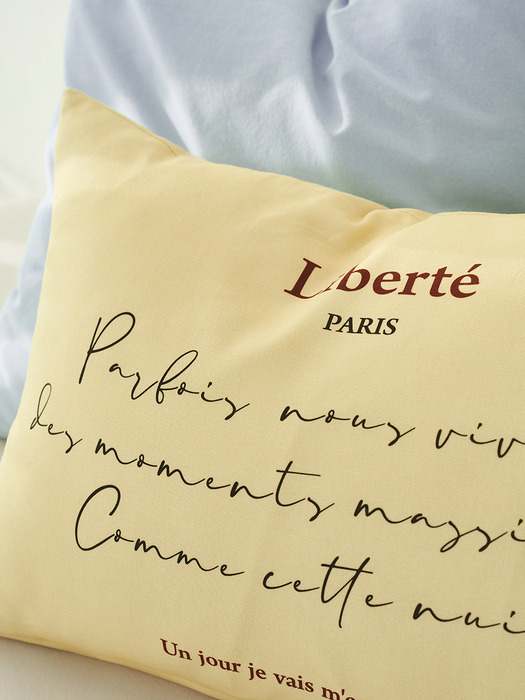 Liberté
PARIS
Parfois nous viv
des moments massi
Comme cette nui
Un jour je vais m'e